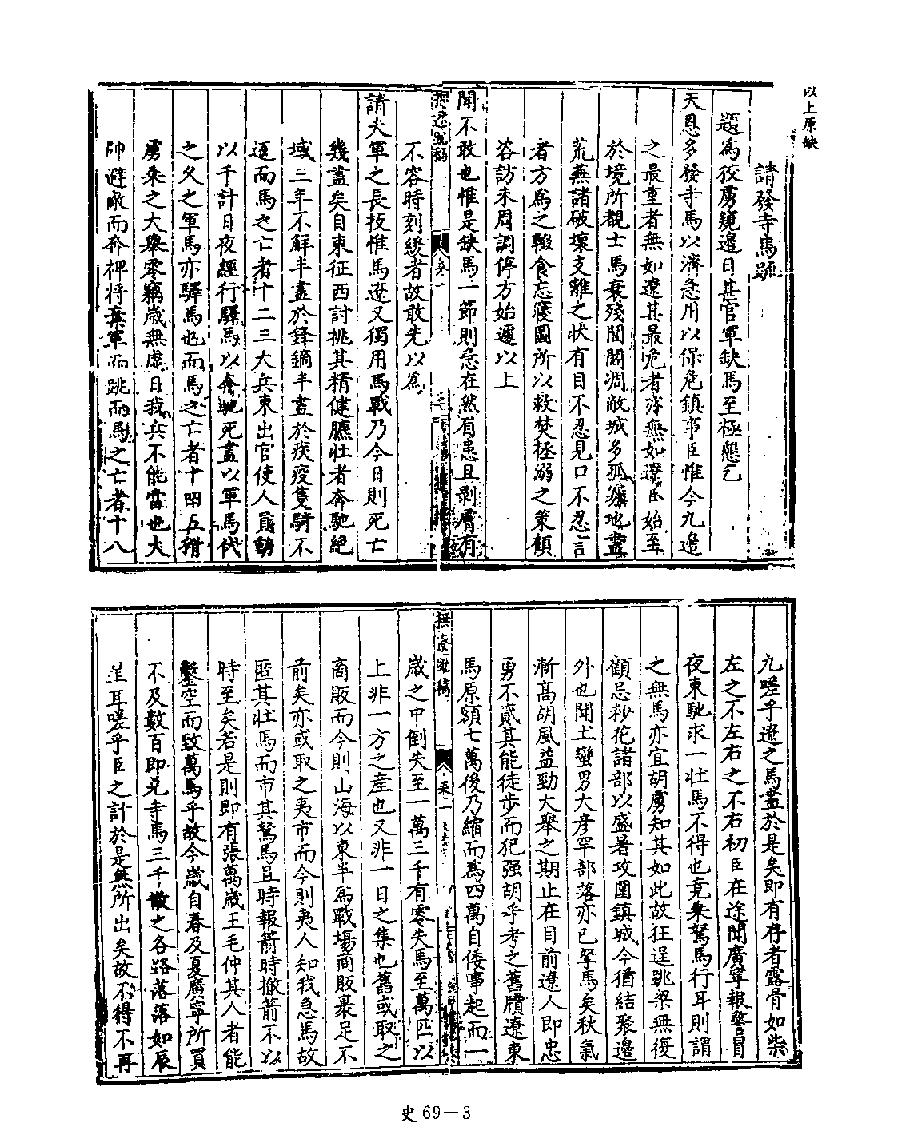 以上原缺
請發寺馬疏
題為狡虜窺邊日甚官軍缺馬至極懇乞
天恩多發寺馬以濟急用以保危鎮事臣惟今九邊
之最重者無如遼其最危者亦無如遼臣始至
於境所覩士馬衰殘閭閻凋敝城多孤壞地盡
荒蕪諸破壞支離之狀有目不忍見口不忍言
者方為之輟食忘寢圖所以救焚拯溺之策顧
咨訪未周調停方始遽以上
聞不敢也惟是缺馬一節則急在然眉患且剥膚有
不容時刻緩者故敢先以為
請夫軍之長技惟馬遼又獨用馬戰乃今日則死亡
幾盡矣自東征西討挑其精健臕壯者奔馳絕
域三年不解半盡於鋒鏑半盡於疾疫隻騎不
還而馬之亡者十二三大兵東出官使人員動
以千計日夜經行驛馬以奔馳死盡以軍馬代
之久之軍馬亦驛馬也而馬之亡者十四五稍
虜乘之大舉零竊歲無虛日我兵不能當也大
帥避敵而奔裨將棄軍而跳而馬之亡者十八
九嗟乎遼之馬盡於是矣即有存者露骨如柴
左之不左右之不右初臣在途聞廣寧報警冒
夜東馳求一壯馬不得也竟乘駑馬行耳則謂
之無馬亦宜胡虜知其如此故狂逞跳梁無復
顧忌秒花諸部以盛暑攻圍鎮城今猶結聚邊
外也聞土蠻男大彥罕部落亦已罕馬矣秋氣
漸高胡風益勁大舉之期止在目前遼人即忠
勇不貳其能徒步而犯强胡乎考之舊牘遼東
馬原額七萬後乃縮而為四萬自倭事起而一
歲之中倒失至一萬三千有零夫馬至萬匹以
上非一方之產也又非一日之集也舊或取之
商販而今則山海以東半為戰場商販裹足不
前矣亦或取之夷市而今則夷人知我急馬故
匿其壯馬而市其駑馬且時報箭時撤箭不以
時至矣若是則即有張萬歲王毛仲其人者能
鑿空而致萬馬乎故今歲自春及夏廣寧所買
不及數百即兌寺馬三千散之各路落落如辰
星耳嗟乎臣之計於是無所出矣故不得不再
史 69—3